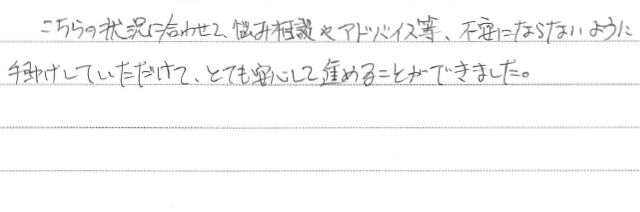 こちらの状況に合わせて、悩み相談やアドバイス等、不安にならないように
手助けしていただけて、とても安心して進めることができました。